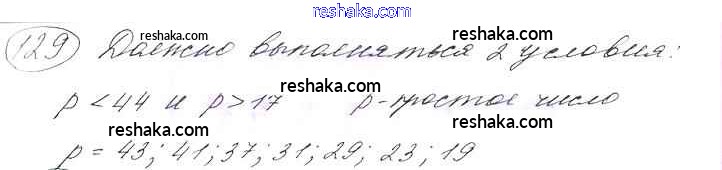 reshaka.com
129 Должно выполняться 2 условия:
reshaka.com
reshaka.com
p < 44 и p > 17 p - простое число
reshaka.com
reshaka.com
reshaka.com
p = 43; 41; 37; 31; 29; 23; 19
reshaka.com